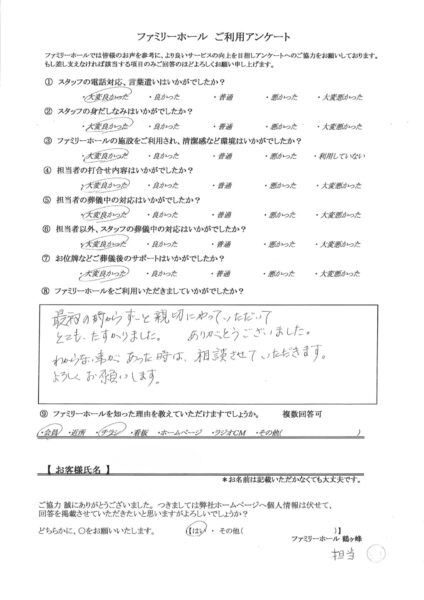 ファミリーホール ご利用アンケート
ファミリーホールでは皆様のお声を参考に、より良いサービスの向上を目指しアンケートへのご協力をお願いしております。
もし差し支えなければ該当する項目のみご回答のほどよろしくお願い申し上げます。
① スタッフの電話対応、言葉遣いはいかがでしたか？
・大変良かった ・良かった ・普通 ・悪かった ・大変悪かった
② スタッフの身だしなみはいかがでしたか？
・大変良かった ・良かった ・普通 ・悪かった ・大変悪かった
③ ファミリーホールの施設をご利用され、清潔感など環境はいかがでしたか？
・大変良かった ・良かった ・普通 ・悪かった ・利用していない
④ 担当者の打合せ内容はいかがでしたか？
・大変良かった ・良かった ・普通 ・悪かった ・大変悪かった
⑤ 担当者の葬儀中の対応はいかがでしたか？
・大変良かった ・良かった ・普通 ・悪かった ・大変悪かった
⑥ 担当者以外、スタッフの葬儀中の対応はいかがでしたか？
・大変良かった ・良かった ・普通 ・悪かった ・大変悪かった
⑦ お位牌などご葬儀後のサポートはいかがでしたか？
・大変良かった ・良かった ・普通 ・悪かった ・大変悪かった
⑧ ファミリーホールをご利用いただきましていかがでしたか？
最初の時からずーと親切にやっていただいて
とても、たすかりました。 ありがとうございました。
わからない事が、あった時は、相談させていただきます。
よろしくお願いします。
⑨ ファミリーホールを知った理由を教えていただけますでしょうか。 複数回答可
・会員 ・近所 ・チラシ ・看板 ・ホームページ ・ラジオCM ・その他( )
【 お客様氏名 】
＊お名前は記載いただかなくても大丈夫です。
ご協力 誠にありがとうございました。つきましては弊社ホームページへ個人情報は伏せて、
回答を掲載させていただきたいと思いますがよろしいでしょうか？
どちらかに、○をお願いいたします。 【はい ・ その他( )】
ファミリーホール 鶴ヶ峰
担当